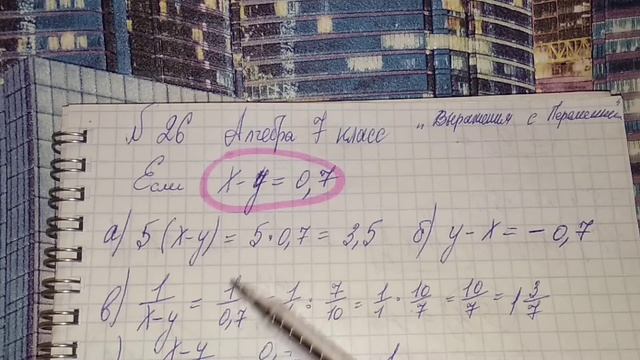 № 26 Алгебра 7 класс „Выражения с
Если x-y = 0,7
а) 5(x-y) = 5·0,7 = 3,5 б) y-x = -0,7
в) 1/(x-y) = 1/0,7 = 1/1 : 7/10 = 1/1 · 10/7 = 10/7 = 1 3/7
x-y